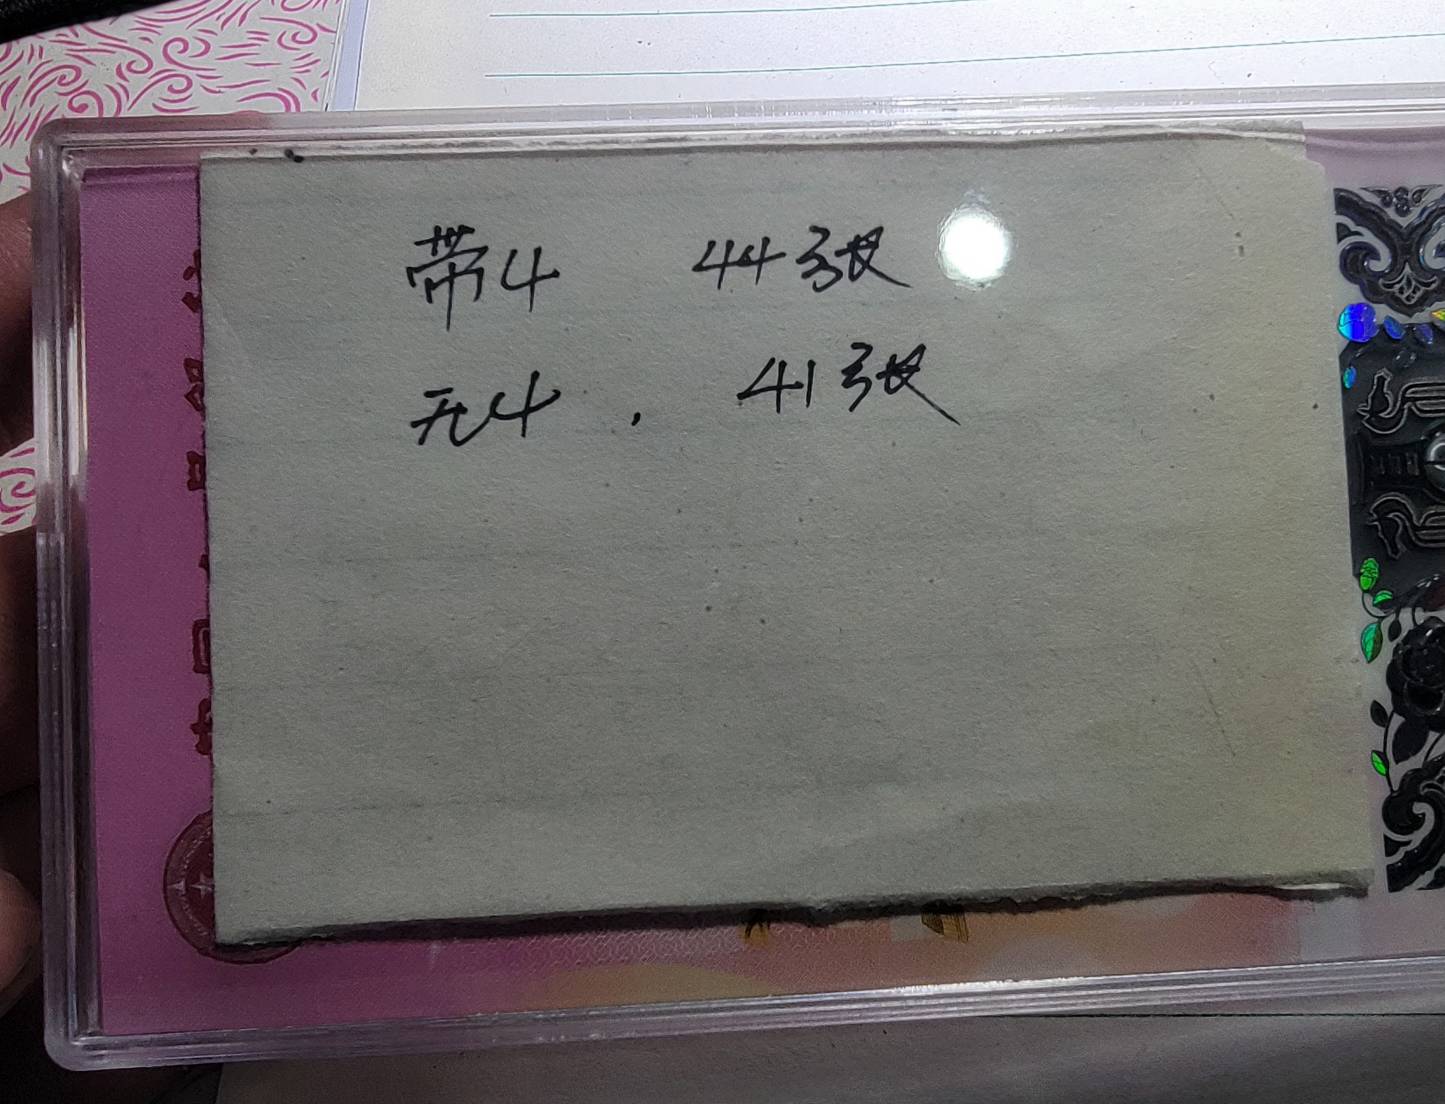 带4 44张
无4. 41张